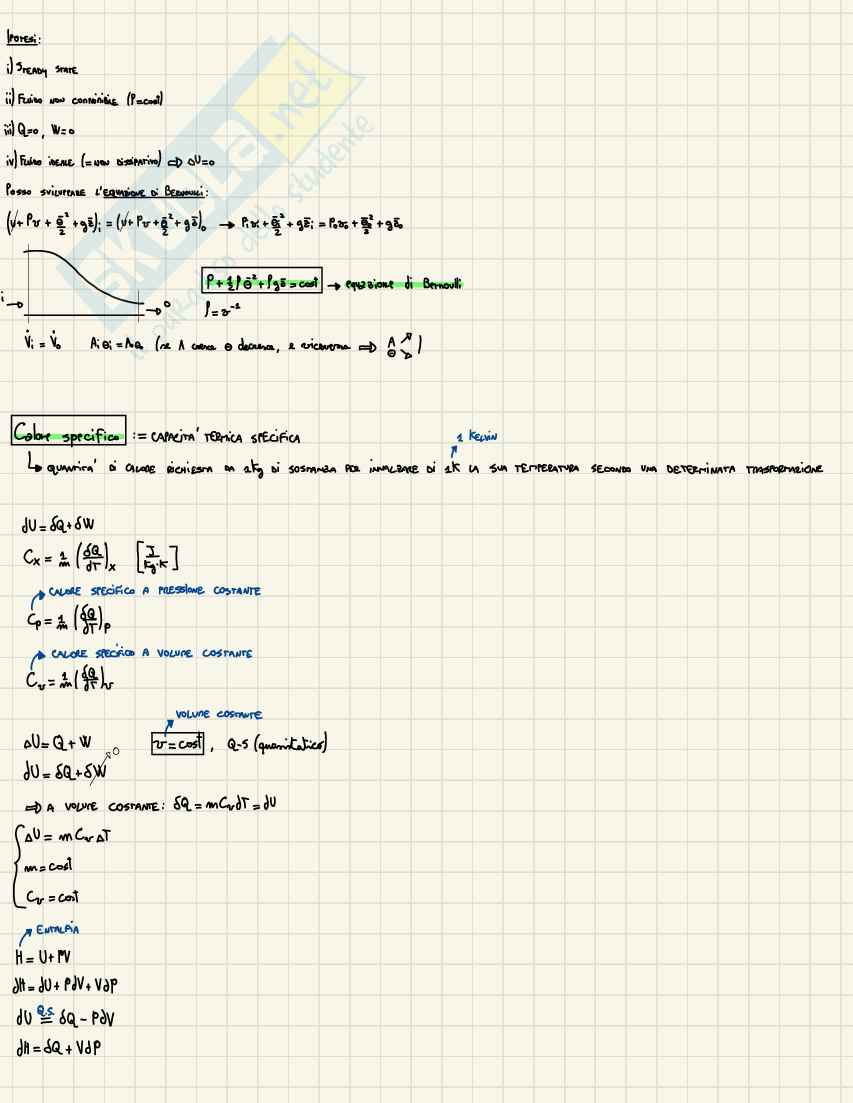 Ipotesi:
i) Steady state
ii) Fluido non comprimibile (ρ=cost)
iii) Q=0, W=0
iv) Fluido ideale (= non dissipativo) ⇒ ΔU=0
Posso sviluppare l'equazione di Bernoulli:
(u + Pv + θ̄²/2 + gz̄)ᵢ = (u + Pv + θ̄²/2 + gz̄)ₒ → Pᵢvᵢ + θ̄ᵢ²/2 + gz̄ᵢ = Pₒvₒ + θ̄ₒ²/2 + gz̄ₒ
i → → o
P + 1/2 ρ θ̄² + ρgz̄ = cost → equazione di Bernoulli
ρ = v⁻¹
V̇ᵢ = V̇ₒ Aᵢθᵢ = Aₒθₒ (se A cresce θ decresce, e viceversa ⇒ A ↗ θ ↘)
Calore specifico := capacita' termica specifica
1 Kelvin
↳ quantita' di calore richiesta da 1kg di sostanza per innalzare di 1K la sua temperatura secondo una determinata trasformazione
dU = δQ + δW
Cx = 1/m (δQ/dT)x [J/kg·K]
calore specifico a pressione costante
Cp = 1/m (δQ/dT)p
calore specifico a volume costante
Cv = 1/m (δQ/dT)v
volume costante
ΔU = Q + W v = cost, Q-S (quasistatico)
dU = δQ + δW 0
⇒ a volume costante: δQ = mCvdT = dU
{ΔU = mCvΔT
m = cost
Cv = cost
entalpia
H = U + PV
dH = dU + PdV + VdP
dU = Q.S. δQ - PdV
dH = δQ + VdP
SKUOLA.net
il paradiso dello studente